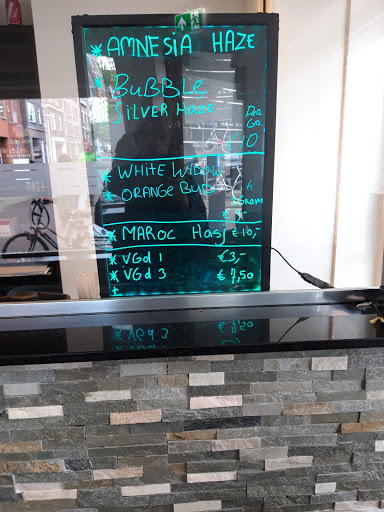 * AMNESiA HAZE
* BuBBLe
SiLVER HAZE Per Gr
€10
* WHiTE WiDOW
* ORANGE BUD
€
* MAROC Hasj €10,-
* VGd 1 €3,-
* VGd 3 €7,50